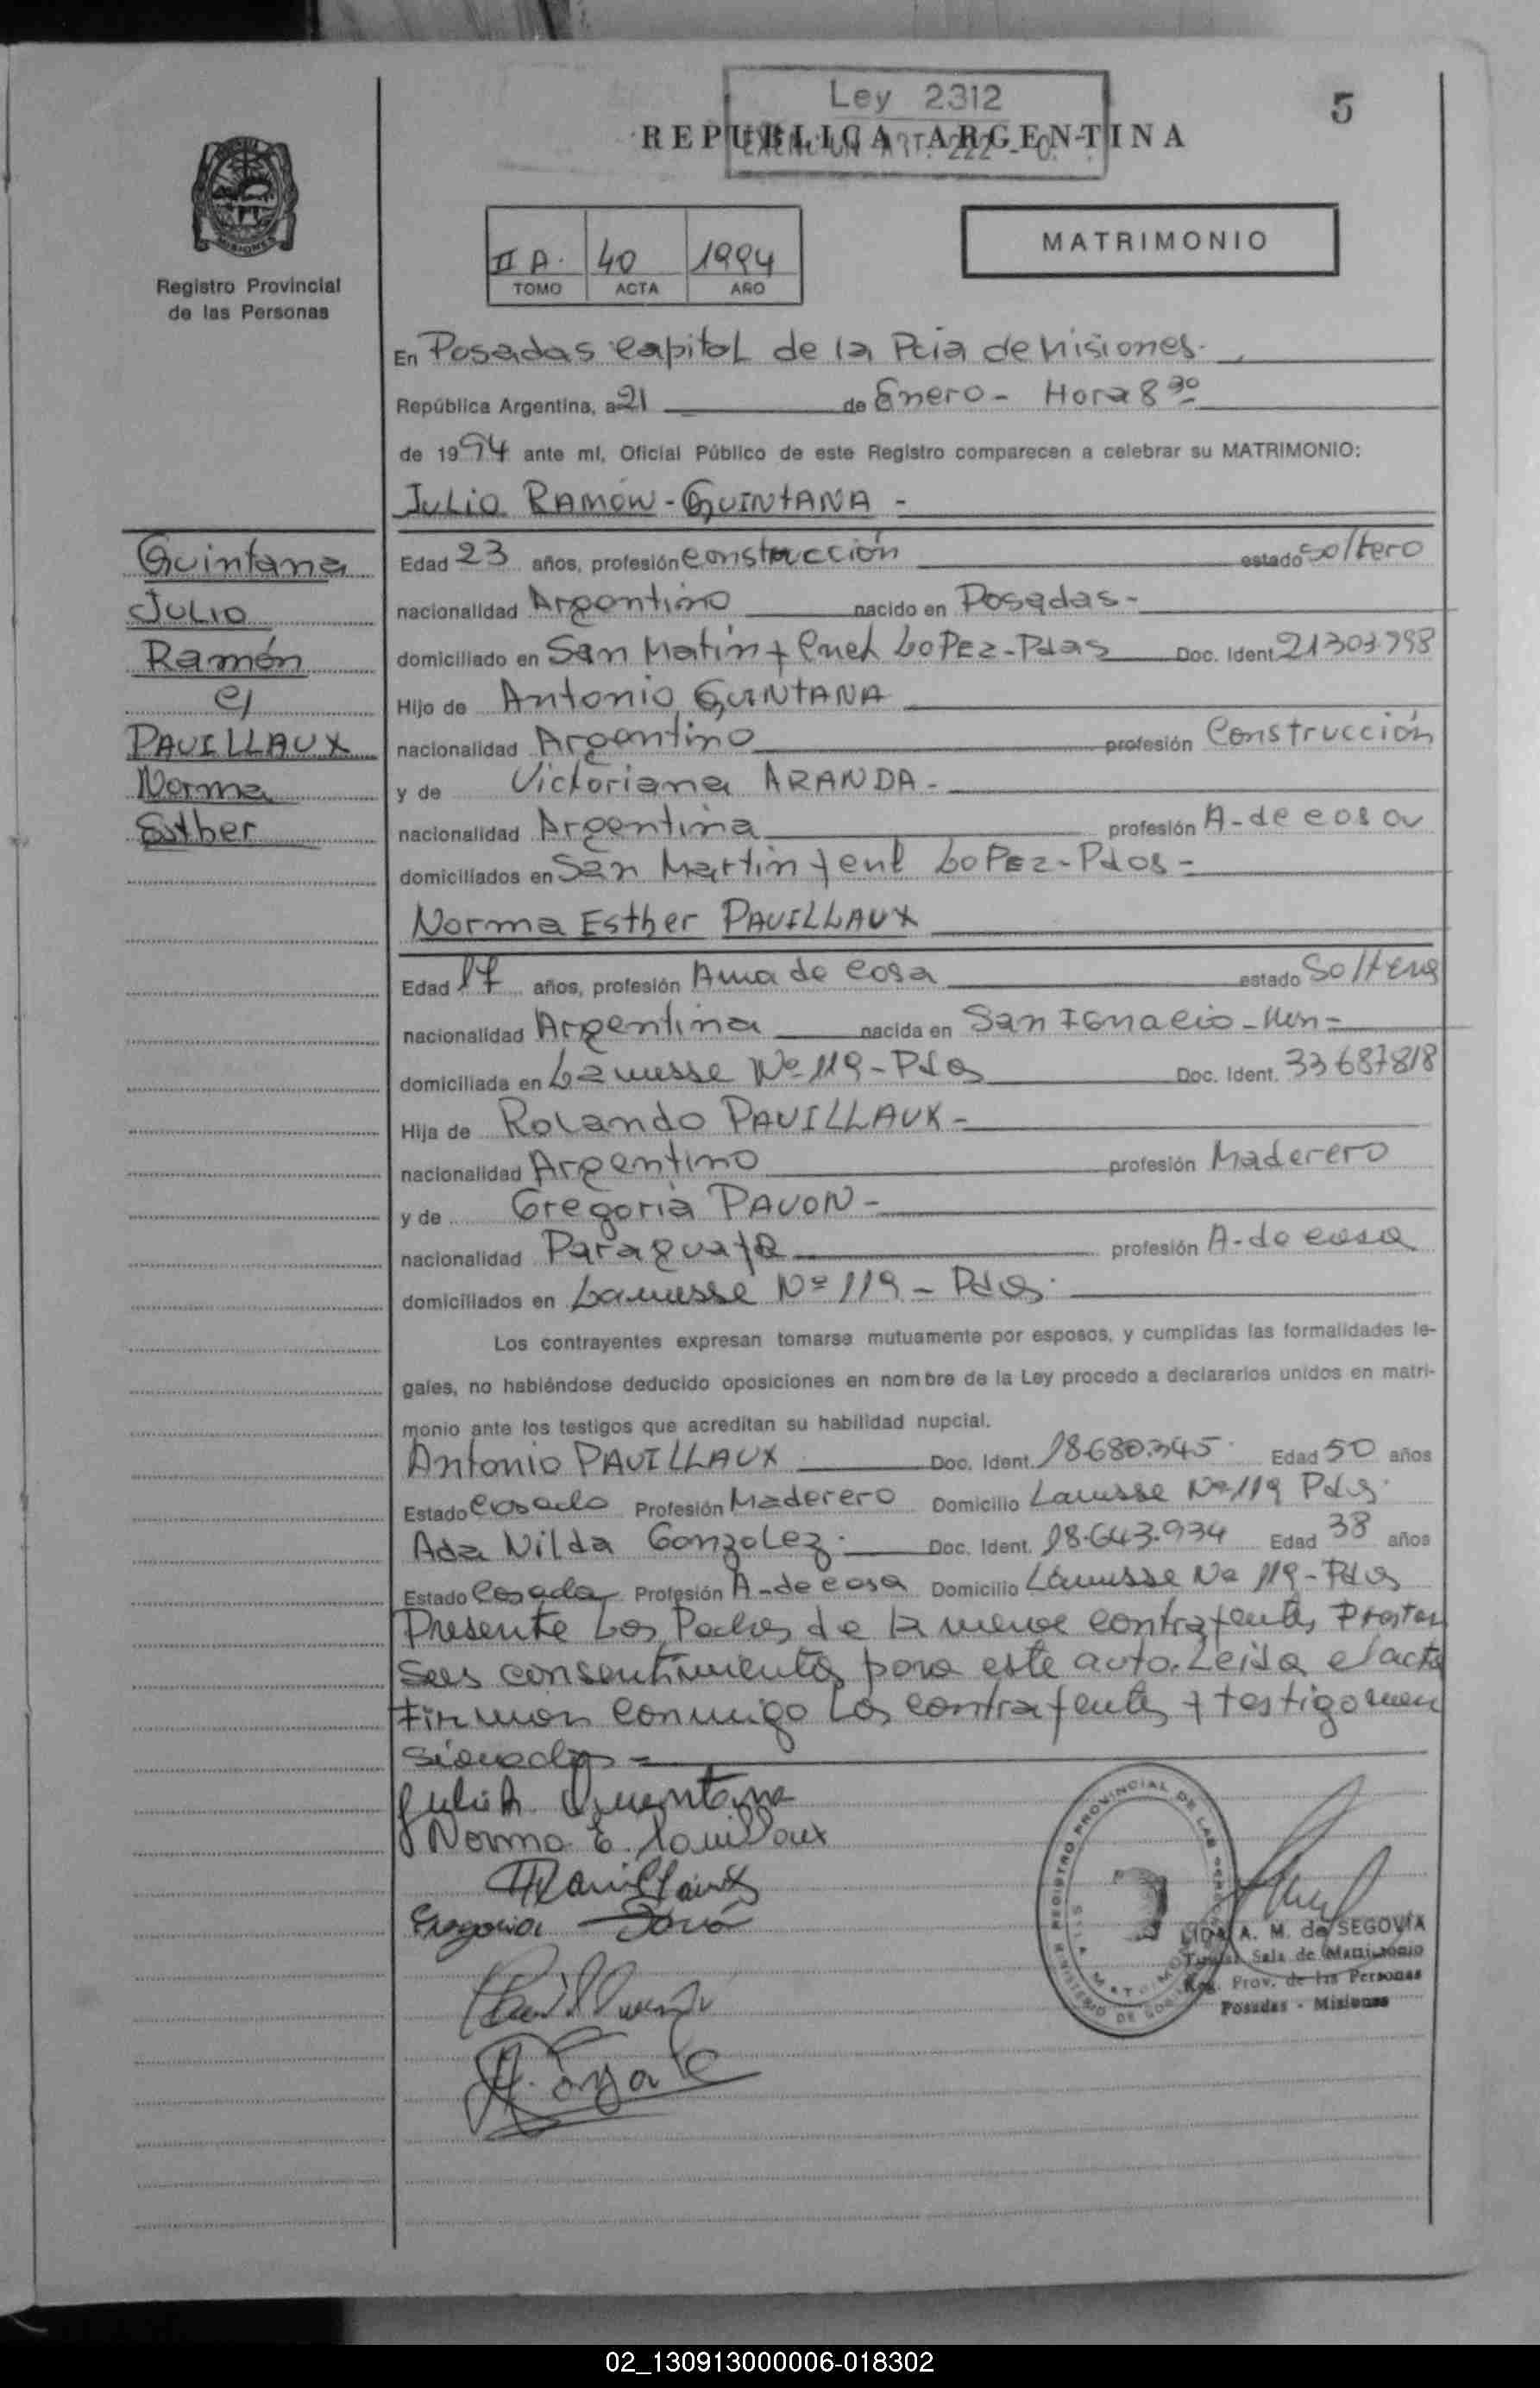 Ley 2312
5
REPUBLICA ARGENTINA
EXENCION ART. 222
MISIONES
Registro Provincial
de las Personas
II A. 40 1994
TOMO ACTA AÑO
MATRIMONIO
En Posadas Capital de la Pcia de Misiones.
República Argentina, a 21 de Enero - Hora 8 30
de 1994 ante mí, Oficial Público de este Registro comparecen a celebrar su MATRIMONIO:
Julio RAMÓN - QUINTANA -
Quintana
Julio
Ramón
c/
PAVILLAUX
Norma
Esther
Edad 23 años, profesión construcción estado soltero
nacionalidad Argentino nacido en Posadas -
domiciliado en San Matín y Cnel LoPEz - Pdas Doc. Ident 21303.798
Hijo de Antonio QUINTANA
nacionalidad Argentino profesión Construcción
y de Victoriana ARANDA -
nacionalidad Argentina profesión A - de casa
domiciliados en San Martin y cnl LoPEz - Pdas -
Norma Esther PAVILLAUX
Edad 17 años, profesión Ama de casa estado Soltera
nacionalidad Argentina nacida en San Ignacio - Mns -
domiciliada en Lanusse Nº 119 - Pdas Doc. Ident. 33687818
Hija de Rolando PAVILLAUX -
nacionalidad Argentino profesión Maderero
y de Gregoria PAVON -
nacionalidad Paraguaya profesión A - de casa
domiciliados en Lanusse Nº 119 - Pdas.
Los contrayentes expresan tomarse mutuamente por esposos, y cumplidas las formalidades le-
gales, no habiéndose deducido oposiciones en nombre de la Ley procedo a declararlos unidos en matri-
monio ante los testigos que acreditan su habilidad nupcial.
Antonio PAVILLAUX Doc. Ident. 18.680.345 Edad 50 años
Estado Casado Profesión Maderero Domicilio Lanusse Nº 119 Pdas.
Ada Nilda Gonzalez. Doc. Ident. 18.643.934 Edad 38 años
Estado Casada Profesión A - de casa Domicilio Lanusse Nº 119 - Pdas
Presente Los Padres de la menor contrayente, Prestan
sus consentimientos para este acto. Leida el acta
Firman conmigo Los contrayentes y testigo men
sionados =
Julio R. Quintana
Norma E. Pavillaux
Pavillaux
Gregoria
REGISTRO PROVINCIAL DE LAS PERSONAS
MINISTERIO DE GOBIERNO
LIDA A. M. de SEGOVIA
Titular Sala de Matrimonio
Reg. Prov. de las Personas
Posadas - Misiones
02_130913000006-018302